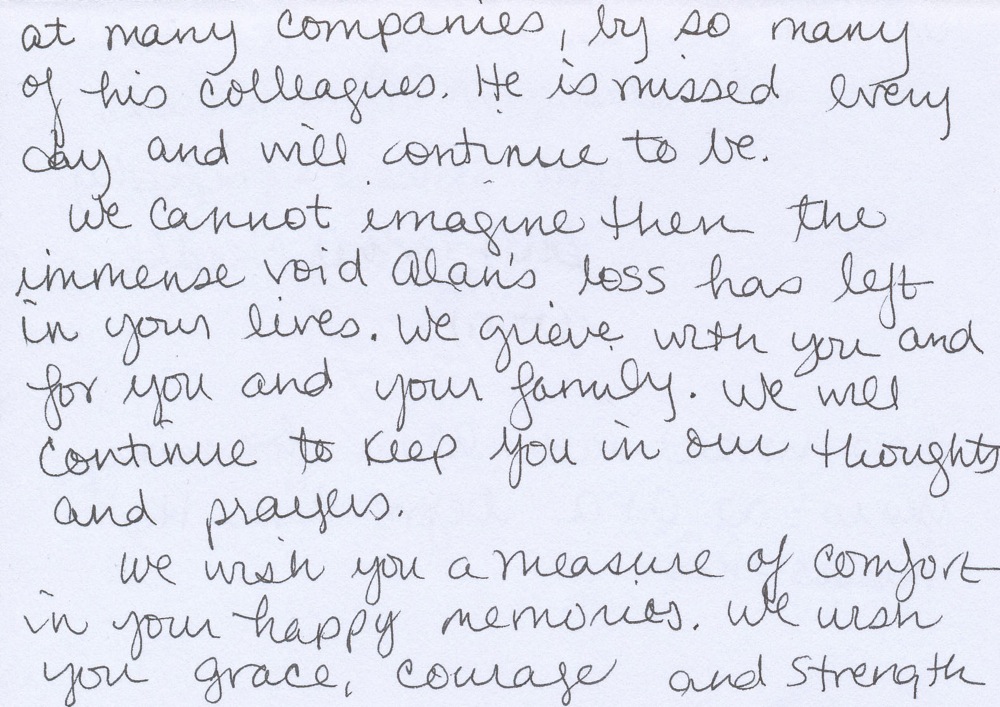 at many companies, by so many
of his colleagues. He is missed every
day and will continue to be.
We cannot imagine then the
immense void Alan's loss has left
in your lives. We grieve with you and
for you and your family. We will
continue to keep you in our thoughts
and prayers.
We wish you a measure of comfort
in your happy memories. We wish
you grace, courage and strength